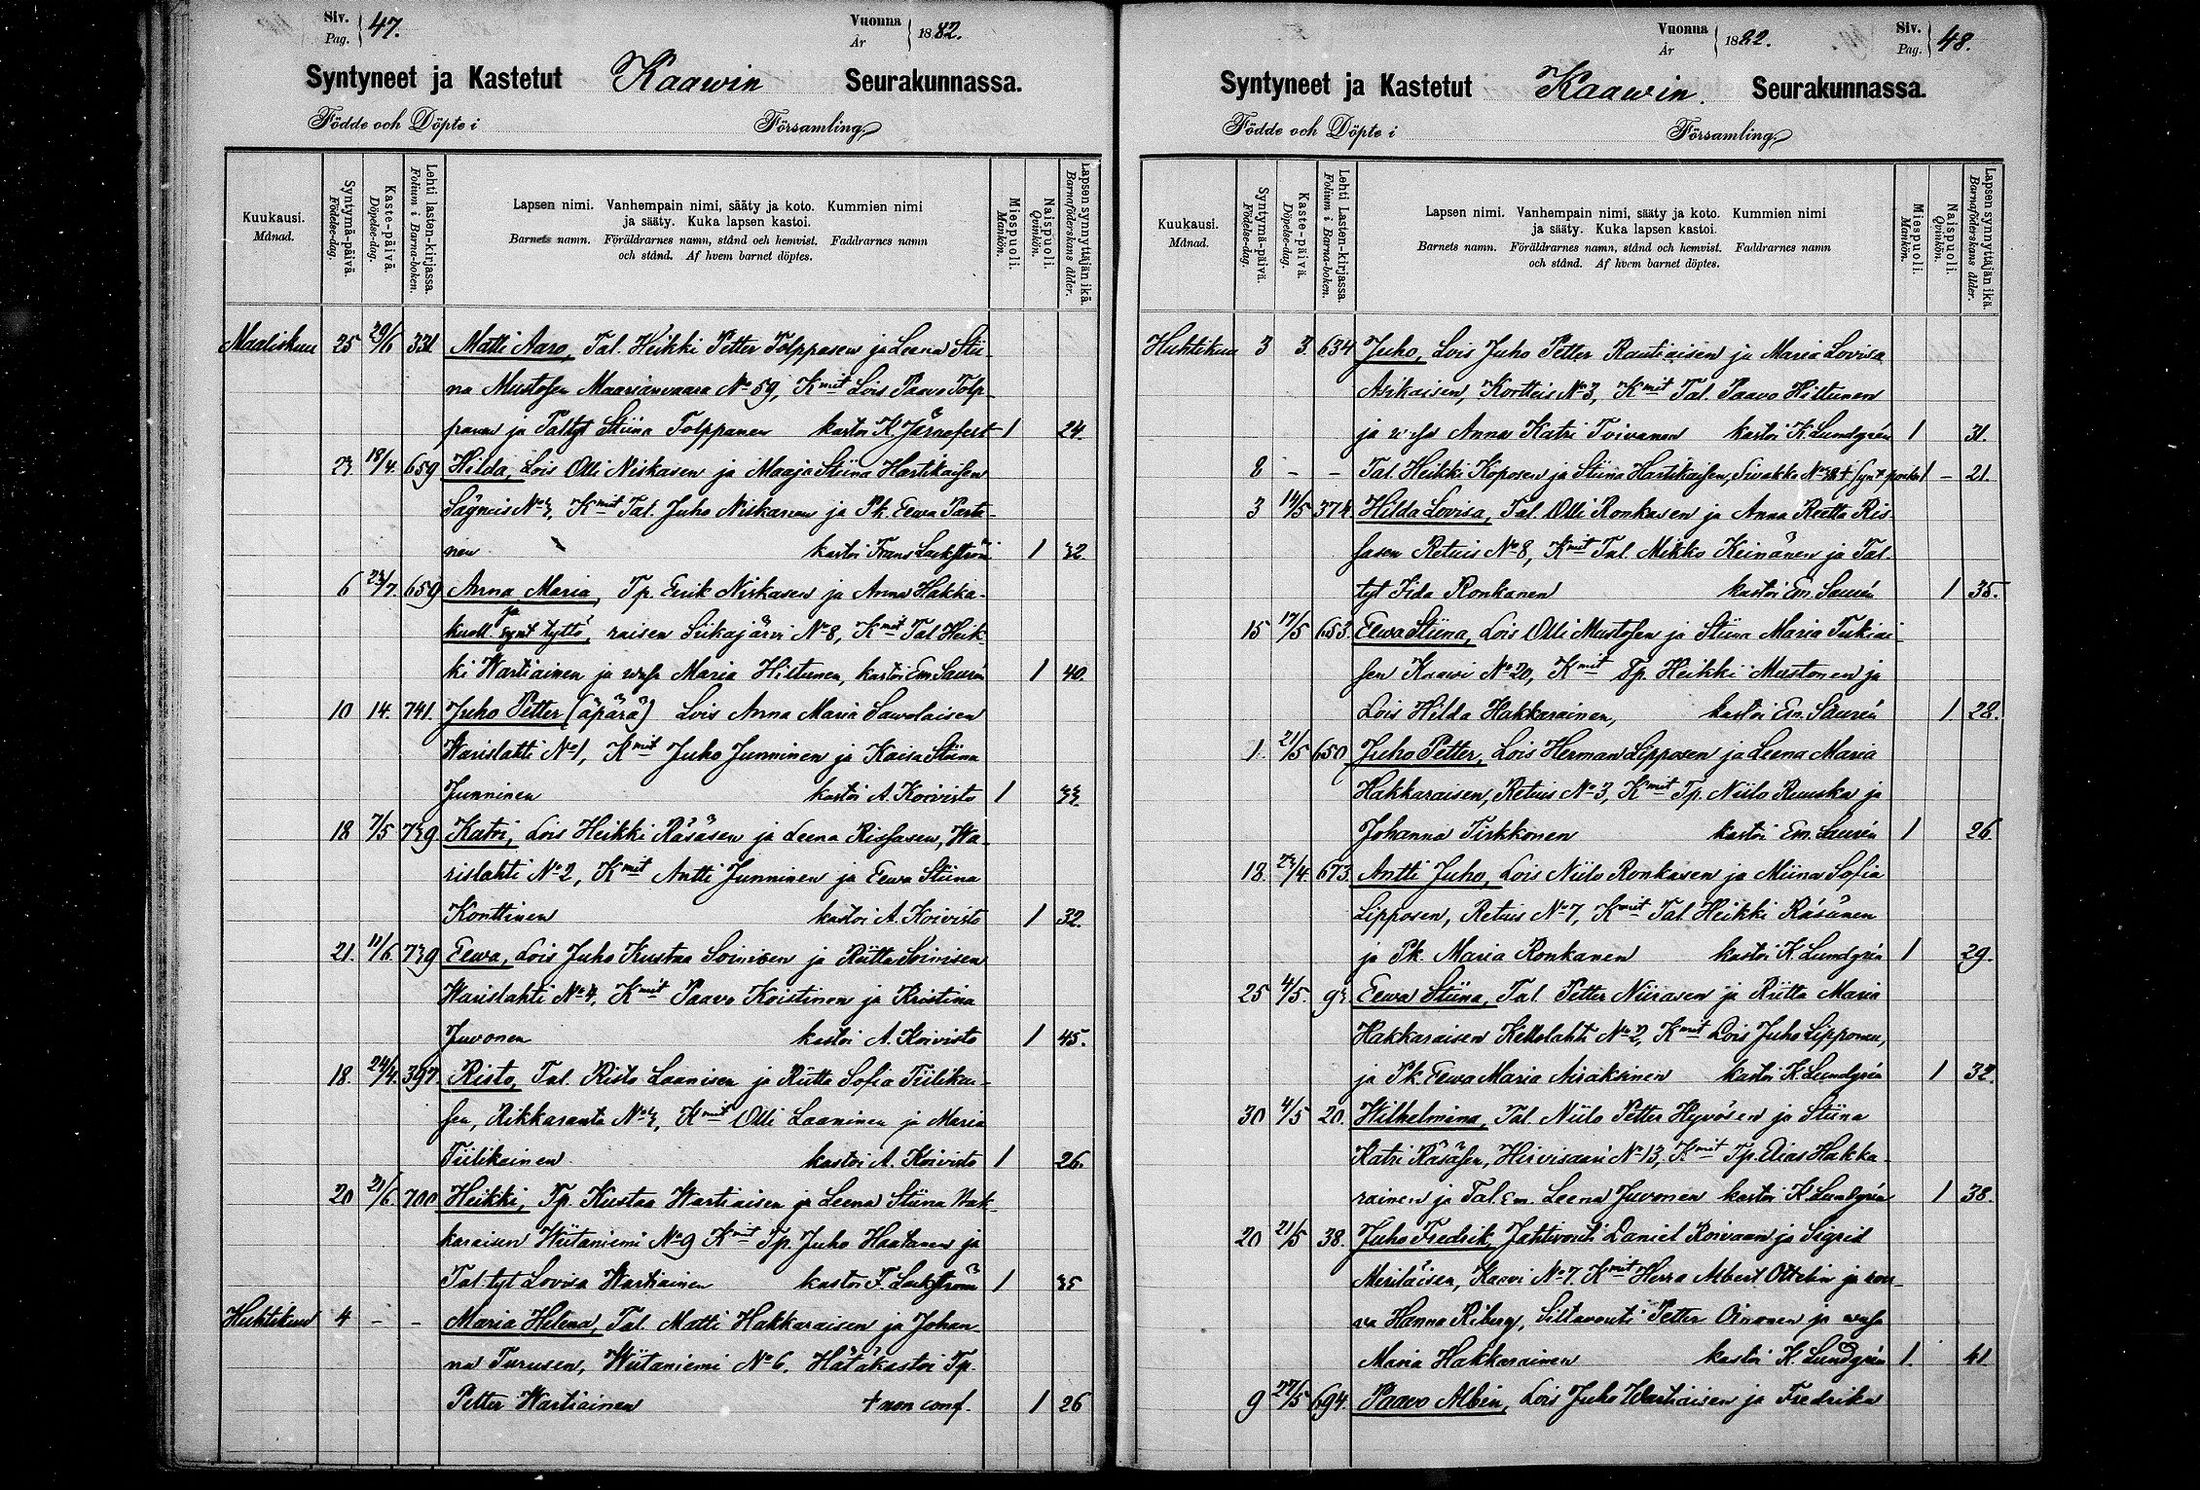 Siv. Pag. 47.
Vuonna År 1882.
Syntyneet ja Kastetut Kaawin Seurakunnassa.
Födde och Döpte i Församling
Kuukausi. Månad.
Syntymä-päivä. Födelse-dag.
Kaste-päivä. Döpelse-dag.
Lehti lasten-kirjassa. Folium i Barna-boken.
Lapsen nimi. Vanhempain nimi, sääty ja koto. Kummien nimi
ja sääty. Kuka lapsen kastoi.
Barnets namn. Föräldrarnes namn, stånd och hemvist. Faddrarnes namn
och stånd. Af hvem barnet döptes.
Miespuoli. Mankön.
Naispuoli. Qvinkön.
Lapsen synnyttäjän ikä. Barnaföderskans ålder.
Maaliskuu 25 29/6 331 Matti Aaro, Tal. Heikki Petter Tolppasen ja Leena Stii
na Mustosen Maarianvaara No 59, Kmit Lois Paavo Tolp
panen ja Taltyt Stiina Tolppanen kastoi K. Järnefelt 1 24.
18/4. 659 Hilda, Lois Olli Niskasen ja Maaja Stiina Hartikaisen
Kmit Tal. Juho Niskanen ja Pk. Eewa Parta-
nen kastoi Frans Lackström 1 32
6 23/7 659 Anna Maria, Tp. Erik Niskasen ja Anna Hakka-
ja
kuoll. synt tyttö, raisen Siikajärvi No 8, Kmit Tal Heik-
ki Wartiainen ja waf Maria Hiltunen, kastoi Em. Saurén 1 40.
10 14. 741. Juho Petter (äpärä) Lois Anna Maria Sawolaisen
Warislahti No 1, Kmit Juho Junninen ja Kaisa Stiina
Junninen kastoi A. Koivisto 1 33
18 7/5 739 Katri, Lois Heikki Räsäsen ja Leena Rissasen, Wa-
rislahti No 2, Kmit Antti Junninen ja Eewa Stiina
Konttinen kastoi A. Koivisto 1 32.
21. 11/6 739 Eewa, Lois Juho Kustaa Soinisen ja Riitta Soinisen
Warislahti No 4, Kmit Paavo Koistinen ja Kristina
Juvonen kastoi A. Koivisto 1 45.
18. 24/4. 397 Risto, Tal. Risto Laanisen ja Riitta Sofia Tiilikai-
sen, Rikkaranta No 3, Kmit Olli Laaninen ja Maria
Tiilikainen kastoi A. Koivisto 1 26.
20 21/6. 700 Heikki, Tp. Kustaa Wartiaisen ja Leena Stiina Hak-
karaisen Wiitaniemi No 9 Kmit Tp. Juho Haatanen ja
Tal.tyt Lovisa Wartiainen kastoi F. Lackström 1 35
Huhtikuu 4 - - Maria Helena, Tal. Matti Hakkaraisen ja Johan-
na Turusen, Wiitaniemi No 6. Hätäkastoi Tp.
Petter Wartiainen + non conf. 1 26
Vuonna År 1882.
Siv. Pag. 48.
Syntyneet ja Kastetut Kaawin. Seurakunnassa.
Födde och Döpte i Församling
Kuukausi. Månad.
Syntymä-päivä. Födelse-dag.
Kaste-päivä. Döpelse-dag.
Lehti Lasten-kirjassa. Folium i Barna-boken.
Lapsen nimi. Vanhempain nimi, sääty ja koto. Kummien nimi
ja sääty. Kuka lapsen kastoi.
Barnets namn. Föräldrarnes namn, stånd och hemvist. Faddrarnes namn
och stånd. Af hvem barnet döptes.
Miespuoli. Mankön.
Naispuoli. Qvinkön.
Lapsen synnyttäjän ikä. Barnaföderskans ålder.
Huhtikuu 3 3. 634 Juho, Lois Juho Petter Rautiaisen ja Maria Lovisa
Asikaisen, Kortteis No 3, Kmit Tal. Paavo Hiltunen
ja Anna Katri Toivanen kastoi K. Lundgrén 1 31.
8 - - Tal. Heikki Koposen ja Stiina Hartikaisen, Sivakka poika 1 - 21.
3 14/5 374 Hilda Lovisa, Tal. Olli Ronkasen ja Anna Reetta Ris-
sasen Retuis No 8, Kmit Tal. Mikko Keinänen ja Tal.
tyt Iida Ronkanen kastoi Em. Saurén 1 35.
15 17/5 653. Eewa Stiina, Lois Olli Mustosen ja Stiina Maria Tukiai-
sen Kaawi No 20, Kmit Tp. Heikki Mustonen ja
Lois Hilda Hakkarainen, kastoi Em. Saurén 1 28.
1. 21/5 650. Juho Petter, Lois Herman Lipposen ja Leena Maria
Hakkaraisen, Retuis No 3, Kmit Tp. Niilo Ruuska ja
Johanna Tirkkonen kastoi Em. Saurén 1 26
18. 23/4. 673. Antti Juho, Lois Niilo Ronkasen ja Miina Sofia
Lipposen, Retuis No 7, Kmit Tal. Heikki Räsänen
ja Pk. Maria Ronkanen kastoi K. Lundgrén 1 29.
25 4/5. 93 Eewa Stiina, Tal. Petter Niirasen ja Riitta Maria
Hakkaraisen Kettolahti No 2, Kmit Lois Juho Lipponen,
ja Pk. Eewa Maria Airaksinen kastoi K. Lundgrén 1 32.
30 4/5 20. Wilhelmina, Tal. Niilo Petter Hyvösen ja Stiina
Katri Räsäsen, Hirvisaari No 13, Kmit Tp. Elias Hakka-
rainen ja Tal. Em. Leena Juvonen kastoi K. Lundgrén 1 38.
20 21/5 38. Juho Fredrik, Jahtivouti Daniel Roivaan ja Sigrid
Meriläisen, Kaavi No 7. Kmit Herra Albert Ottelin ja rou-
va Hanna Riberg, Siltavouti Petter Oinonen ja
Maria Hakkarainen kastoi K. Lundgrén 1. 41
9 27/5 694. Paavo Albin, Lois Juho Wartiaisen ja Fredrika